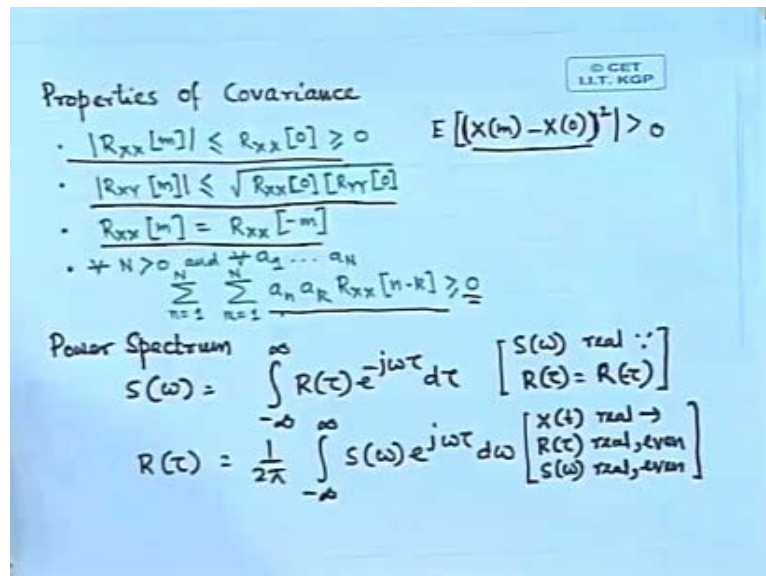 © CET
I.I.T. KGP
Properties of Covariance
· |Rxx[m]| ≤ Rxx[0] ≥ 0
E[(X(m) - X(0))²| > 0
· |Rxy[m]| ≤ √Rxx[0][Ryy[0]
· Rxx[m] = Rxx[-m]
· ∀ N>0 and ∀ a₁ ... a_N
N N
Σ Σ a_n a_k Rxx[n-k] ≥ 0
n=1 n=1
Power Spectrum
S(ω) = ∫_{-∞}^{∞} R(τ) e^{-jωτ} dτ [S(ω) real ∵
R(τ) = R(-τ)]
R(τ) = 1/2π ∫_{-∞}^{∞} S(ω) e^{jωτ} dω [X(t) real →
R(τ) real, even
S(ω) real, even]